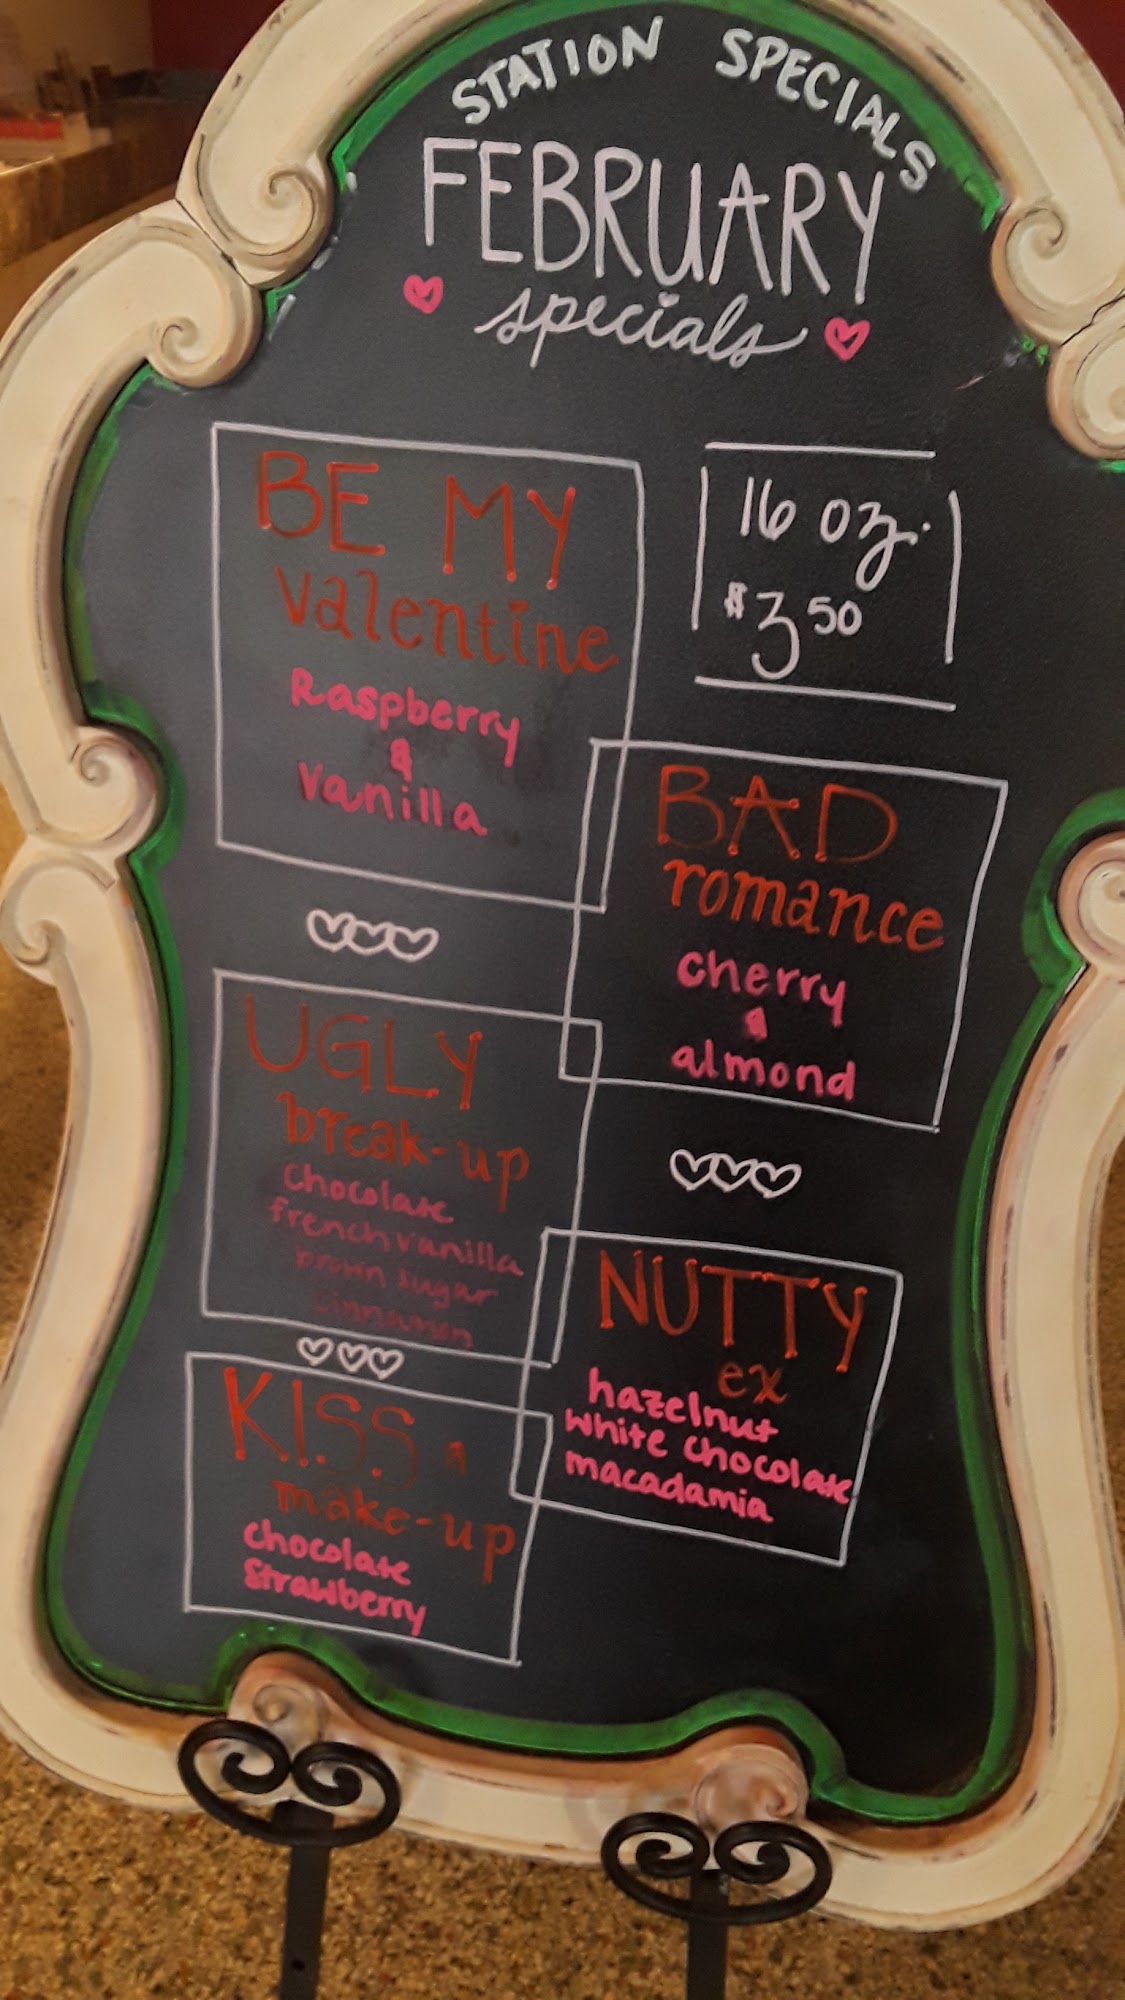 STATION SPECIALS
FEBRUARY
specials
BE MY
valentine
Raspberry
&
vanilla
16 oz.
$3 50
BAD
romance
cherry
&
almond
UGLY
break-up
chocolate
french vanilla
brown sugar
cinnamon
NUTTY
ex
hazelnut
white chocolate
macadamia
KISS n
make-up
chocolate
strawberry